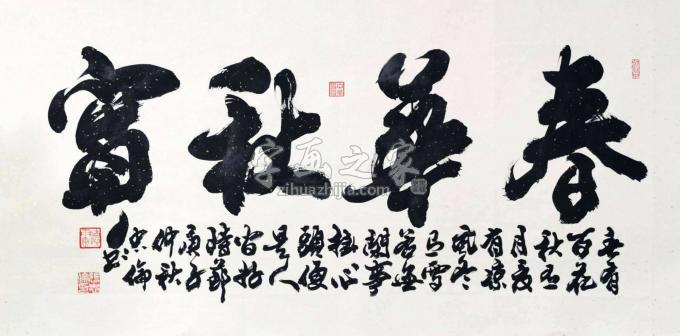 春華秋實
春有
百花
秋有
月夏
有凉
風冬
有雪
若無
閑事
掛心
頭便
是人
間好
時節
庚子
仲秋
倫
字画之家
zihuazhijia.com